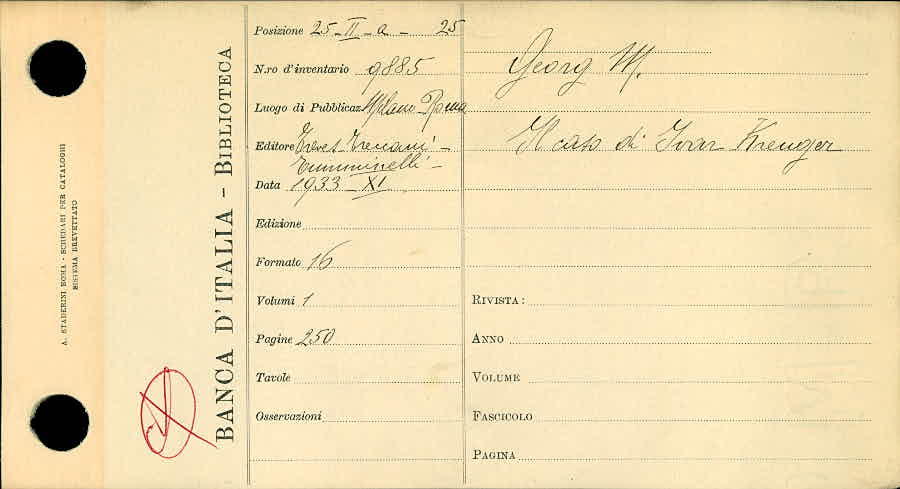 A. STADERINI ROMA - SCHEDARI PER CATALOGHI
SISTEMA BREVETTATO
BANCA D'ITALIA – BIBLIOTECA
Posizione 25-II-a- 25
N.ro d'inventario 9885
Luogo di Pubblicaz. Milano-Roma
Editore Treves-Treccani-
Tumminelli-
Data 1933-XI
Edizione
Formato 16
Volumi 1
Pagine 250
Tavole
Osservazioni
Georg M.
Il caso di Ivar Kreuger
RIVISTA:
ANNO
VOLUME
FASCICOLO
PAGINA